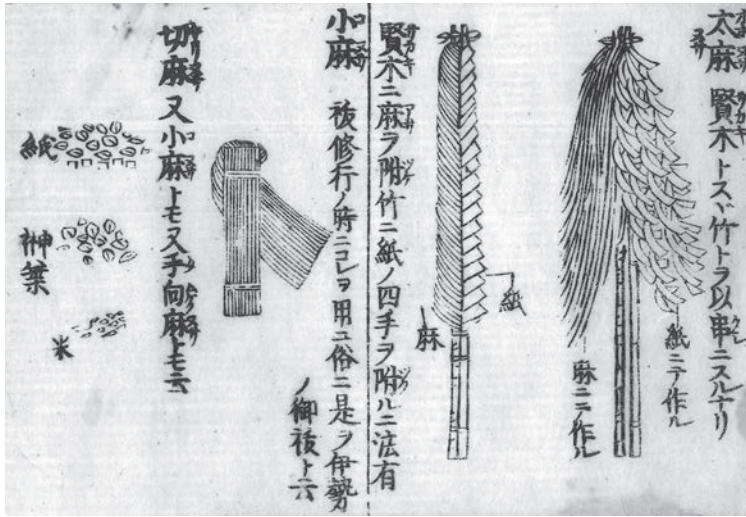 太麻 賢木トスヾ竹トヲ以串ニスルナリ
紙ニテ作ル
麻ニテ作ル
紙
麻
賢木ニ麻ヲ附竹ニ紙ノ四手ヲ附ルニ法有
小麻 祓修行ノ時ニコレヲ用ユ俗ニ是ヲ伊勢
ノ御祓ト云
切麻 又小麻トモ又手向麻トモ云
紙
榊葉
米